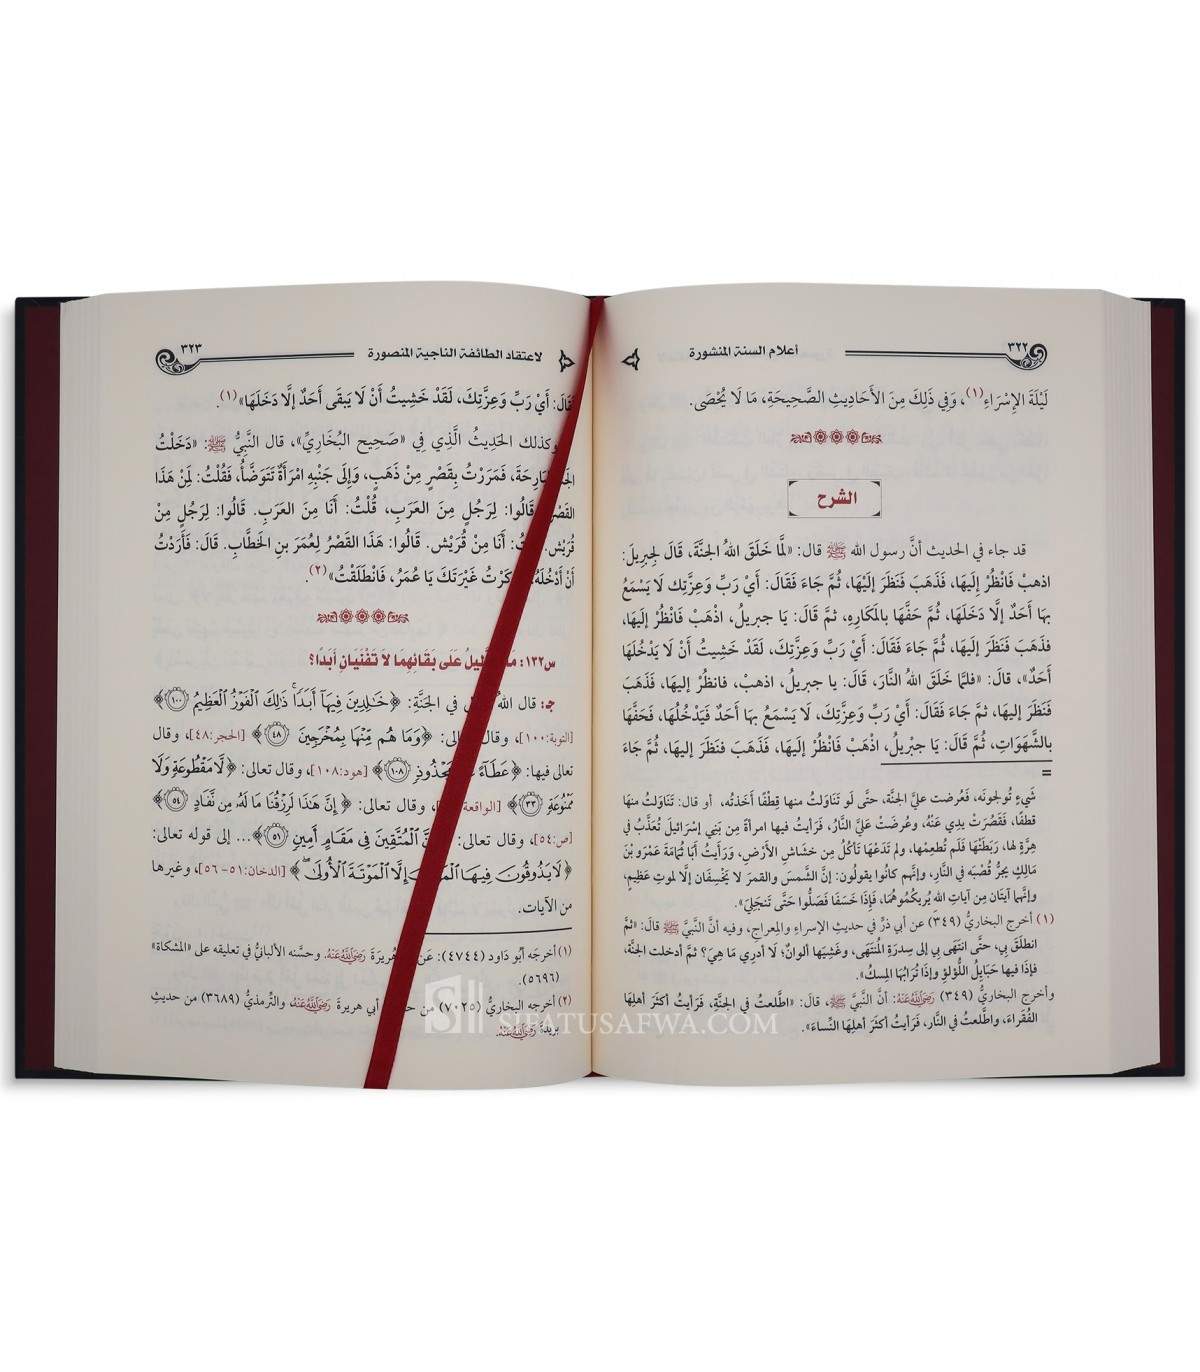 ٣٢٢
أعلام السنة المنشورة
لَيْلَةَ الإِسْرَاءِ(١)، وَفِي ذَلِكَ مِنَ الأَحَادِيثِ الصَّحِيحَةِ، مَا لَا يُحْصَى.
الشرح
قد جاء في الحديث أنَّ رسول الله ﷺ قال: «لَمَّا خَلَقَ اللهُ الجَنَّةَ، قَالَ لِجِبرِيلَ:
اذهبْ فَانْظُرْ إِلَيهَا، فَذَهَبَ فَنَظَرَ إِلَيْهَا، ثُمَّ جَاءَ فَقَالَ: أَيْ رَبِّ وَعِزَّتِكَ لَا يَسْمَعُ
بِهَا أَحَدٌ إِلَّا دَخَلَهَا، ثُمَّ حَفَّهَا بِالمَكَارِهِ، ثمَّ قَالَ: يَا جبريلُ، اذْهَبْ فَانْظُرْ إِلَيهَا،
فَذهَبَ فَنَظَرَ إِلَيهَا، ثُمَّ جَاءَ فَقَالَ: أَيْ رَبِّ وَعِزَّتِكَ، لَقَدْ خَشِيتُ أَنْ لَا يَدْخُلَهَا
أَحَدٌ»، قَالَ: «فلمَّا خَلَقَ اللهُ النَّارَ، قَالَ: يا جبريلُ، اذهبْ، فانظُر إليهَا، فَذَهَبَ
فَنَظَرَ إليهَا، ثمَّ جَاءَ فَقَالَ: أَيْ رَبِّ وَعِزَّتِكَ، لَا يَسْمَعُ بِهَا أَحَدٌ فَيَدْخُلُهَا، فَحَفَّهَا
بِالشَّهَوَاتِ، ثُمَّ قَالَ: يَا جِبْرِيلُ، اذْهَبْ فَانْظُرْ إِلَيْهَا، فَذَهَبَ فَنَظَرَ إليهَا، ثُمَّ جَاءَ
=
شَيءٍ تُولجونَه، فَعُرضت عليَّ الجنَّة، حتَّى لَو تَنَاوَلتُ منها قِطْفًا أَخذتُه، أو قال: تَنَاوَلتُ منهَا
قطفًا، فَقَصُرَتْ يدِي عَنْهُ، وعُرِضَتْ عَليَّ النَّارُ، فَرأيتُ فيها امرأةً مِن بَنِي إسْرَائيلَ تُعذَّبُ في
هِرَّةٍ لها، رَبَطَتْهَا فَلَم تُطعِمْها، ولم تَدَعْهَا تَأكُلُ مِن خشَاشِ الأَرْضِ، وَرَأيتُ أَبَا ثُمَامَةَ عَمْرَو بْنَ
مَالِكٍ يجُرُّ قُصْبَه في النَّارِ، وإنَّهم كانُوا يقولُونَ: إنَّ الشَّمسَ والقمرَ لا يَخْسِفَانِ إلَّا لموتِ عَظِيمٍ،
وإنَّهما آيتَانِ مِن آيَاتِ اللهِ يُريكُمُوهُمَا، فَإذَا خَسَفَا فَصَلُّوا حَتَّى تَنجَلِيَ».
(١) أخرج البخاريُّ (٣٤٩) عن أبي ذرٍّ في حديثِ الإسراءِ والمِعراجِ، وفيه أنَّ النَّبيَّ ﷺ قالَ: «ثمَّ
انطلَقَ بِي، حتَّى انتَهَى بِي إلى سِدرةِ المُنتَهَى، وغَشِيَها ألوانٌ؛ لَا أدرِي مَا هِيَ؟ ثمَّ أدخلت الجنَّة،
فإذَا فيها حَبَايِلُ اللُّؤلؤِ وإذَا تُرَابُهَا المِسكُ».
وأخرج البخاريُّ (٣٤٩) رَضِيَ اللَّهُ عَنْهُ: أنَّ النَّبيَّ ﷺ، قالَ: «اطَّلعتُ في الجنَّةِ، فَرأيتُ أكثَرَ أهلِهَا
الفُقَراءَ، واطَّلعتُ في النَّارِ، فَرأيتُ أكثَرَ أهلِهَا النِّساءَ».
٣٢٣
لاعتقاد الطائفة الناجية المنصورة
فَقَالَ: أَيْ رَبِّ وَعِزَّتِكَ، لَقَدْ خَشِيتُ أَنْ لَا يَبقَى أَحَدٌ إِلَّا دَخَلَهَا»(١).
وكذلك الحَدِيثُ الَّذِي فِي «صَحِيحِ البُخَارِيِّ»، قال النَّبِيُّ ﷺ: «دَخَلْتُ
البَارِحَةَ، فَمَرَرْتُ بِقَصْرٍ مِنْ ذَهَبٍ، وَإِلَى جَنْبِهِ امْرَأَةٌ تَتَوَضَّأُ، فَقُلْتُ: لِمَنْ هَذَا
القَصْرُ؟ قَالُوا: لِرَجُلٍ مِنَ العَرَبِ، قُلْتُ: أَنَا مِنَ العَرَبِ. قَالُوا: لِرَجُلٍ مِنْ
قُرَيْشٍ. أَنَا مِنْ قُرَيْشٍ. قَالُوا: هَذَا القَصْرُ لِعُمَرَ بنِ الخَطَّابِ. قَالَ: فَأَرَدْتُ
أَنْ أَدْخُلَهُ غَيْرَتَكَ يَا عُمَرُ، فَانْطَلَقْتُ»(٢).
س١٣٢: عَلَى بَقَائِهِمَا لَا تَفْنَيَانِ أَبَدًا؟
ج: قال اللهُ في الجَنَّةِ: ﴿خَٰلِدِينَ فِيهَآ أَبَدٗاۚ ذَٰلِكَ ٱلۡفَوۡزُ ٱلۡعَظِيمُ ١٠٠﴾
[التوبة:١٠٠]، وقال تعالى: ﴿وَمَا هُم مِّنۡهَا بِمُخۡرَجِينَ ٤٨﴾ [الحجر:٤٨]، وقال
تعالى فيها: ﴿عَطَآءً مَجۡذُوذٖ ١٠٨﴾ [هود:١٠٨]، وقال تعالى: ﴿لَّا مَقۡطُوعَةٖ وَلَا
مَمۡنُوعَةٖ ٣٣﴾ [الواقعة، وقال تعالى: ﴿إِنَّ هَٰذَا لَرِزۡقُنَا مَا لَهُۥ مِن نَّفَادٍ ٥٤﴾
[ص:٥٤]، وقال تعالى: ﴿إِنَّ ٱلۡمُتَّقِينَ فِي مَقَامٍ أَمِينٖ ٥١﴾... إلى قوله تعالى:
﴿لَا يَذُوقُونَ فِيهَا ٱلۡمَوۡتَ إِلَّا ٱلۡمَوۡتَةَ ٱلۡأُولَىٰۖ﴾ [الدخان:٥١-٥٦]، وغيرها
من الآيات.
(١) أخرجَه أبُو دَاود (٤٧٤٤): عَنْ هُريرَةَ رَضِيَ اللَّهُ عَنْهُ. وحسَّنه الألبانيُّ في تعليقه على «المشكاة»
(٥٦٩٦).
(٢) أخرجه البخاريُّ (٧٠٢٥) من أبي هريرةَ رَضِيَ اللَّهُ عَنْهُ، والتِّرمذيُّ (٣٦٨٩) من حديثِ
بريدةَ رَضِيَ اللَّهُ عَنْهُ.
SIFATUSAFWA.COM